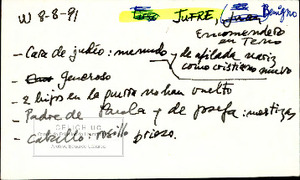 W 8-8-91 JUFRE, Benigno
Encomendero
en Teno
- Cara de judío: menudo y de afilada nariz
como cristiano nuevo
- Generoso
- 2 hijos en la guerra no han vuelto
- Padre de Paula y de Josefa: mestizas
- Caballo: rosillo prieto.